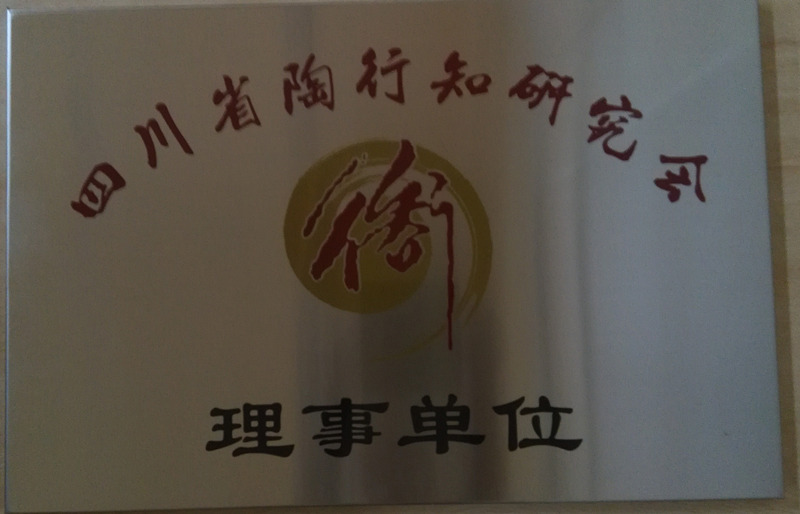 四川省陶行知研究会
理事单位